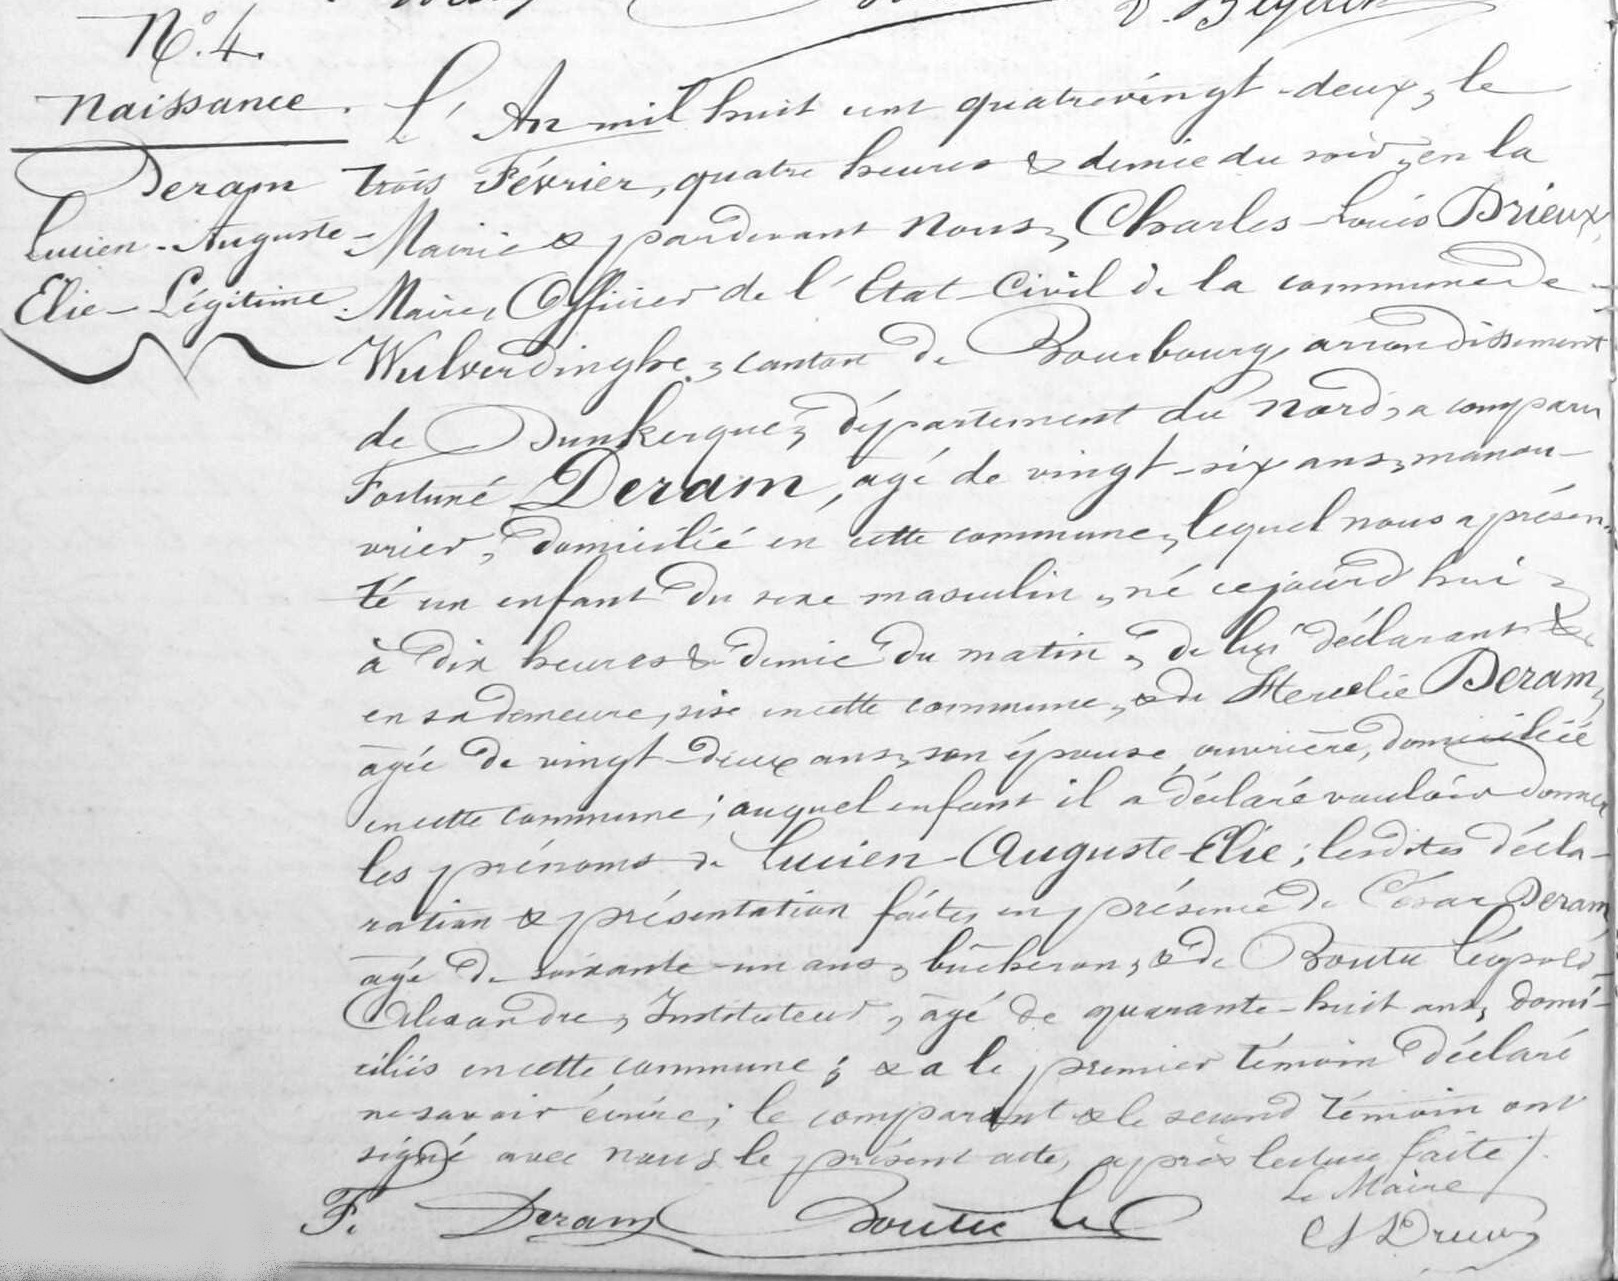 N.° 4.
Naissance.
Deram
Lucien-Auguste-
Elie-Légitime.
L'An mil huit cent quatrevingt-deux, le
trois Février, quatre heures & demie du soir, en la
Mairie & pardevant Nous, Charles-Louis Drieux,
Maire, Officier de l'Etat-Civil de la commune de
Wulverdinghe, canton de Bourbourg, arrondissement
de Dunkerque, département du Nord, a comparu
Fortuné Deram, agé de vingt-six ans, manou-
vrier, domicilié en cette commune, lequel nous a présen-
té un enfant du sexe masculin, né cejourd'hui,
à dix heures & demie du matin, de lui déclarant &
en sa demeure, sise en cette commune, & de Herelie Deram,
agée de vingt-deux ans, son épouse, ouvrière, domiciliée
en cette commune; auquel enfant il a déclaré vouloir donner
les prénoms de Lucien-Auguste-Elie; lesdites décla-
ration & présentation faites en présence de César Deram,
agé de soixante-un ans, bûcheron, & de Boutu Léopold-
Alexandre, Instituteur, agé de quarante-huit ans, domi-
ciliés en cette commune; & a le premier témoin déclaré
ne savoir écrire; le comparant & le second témoin ont
signé avec nous le présent acte, après lecture faite /.
Le Maire
F. Deram Boutu